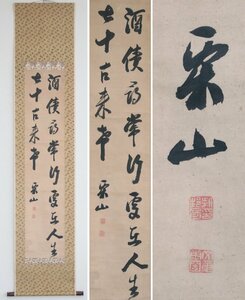 酒債尋常行處在人生
七十古来希
栗山
酒債尋常行處在人生
七十古来希
栗山
栗山